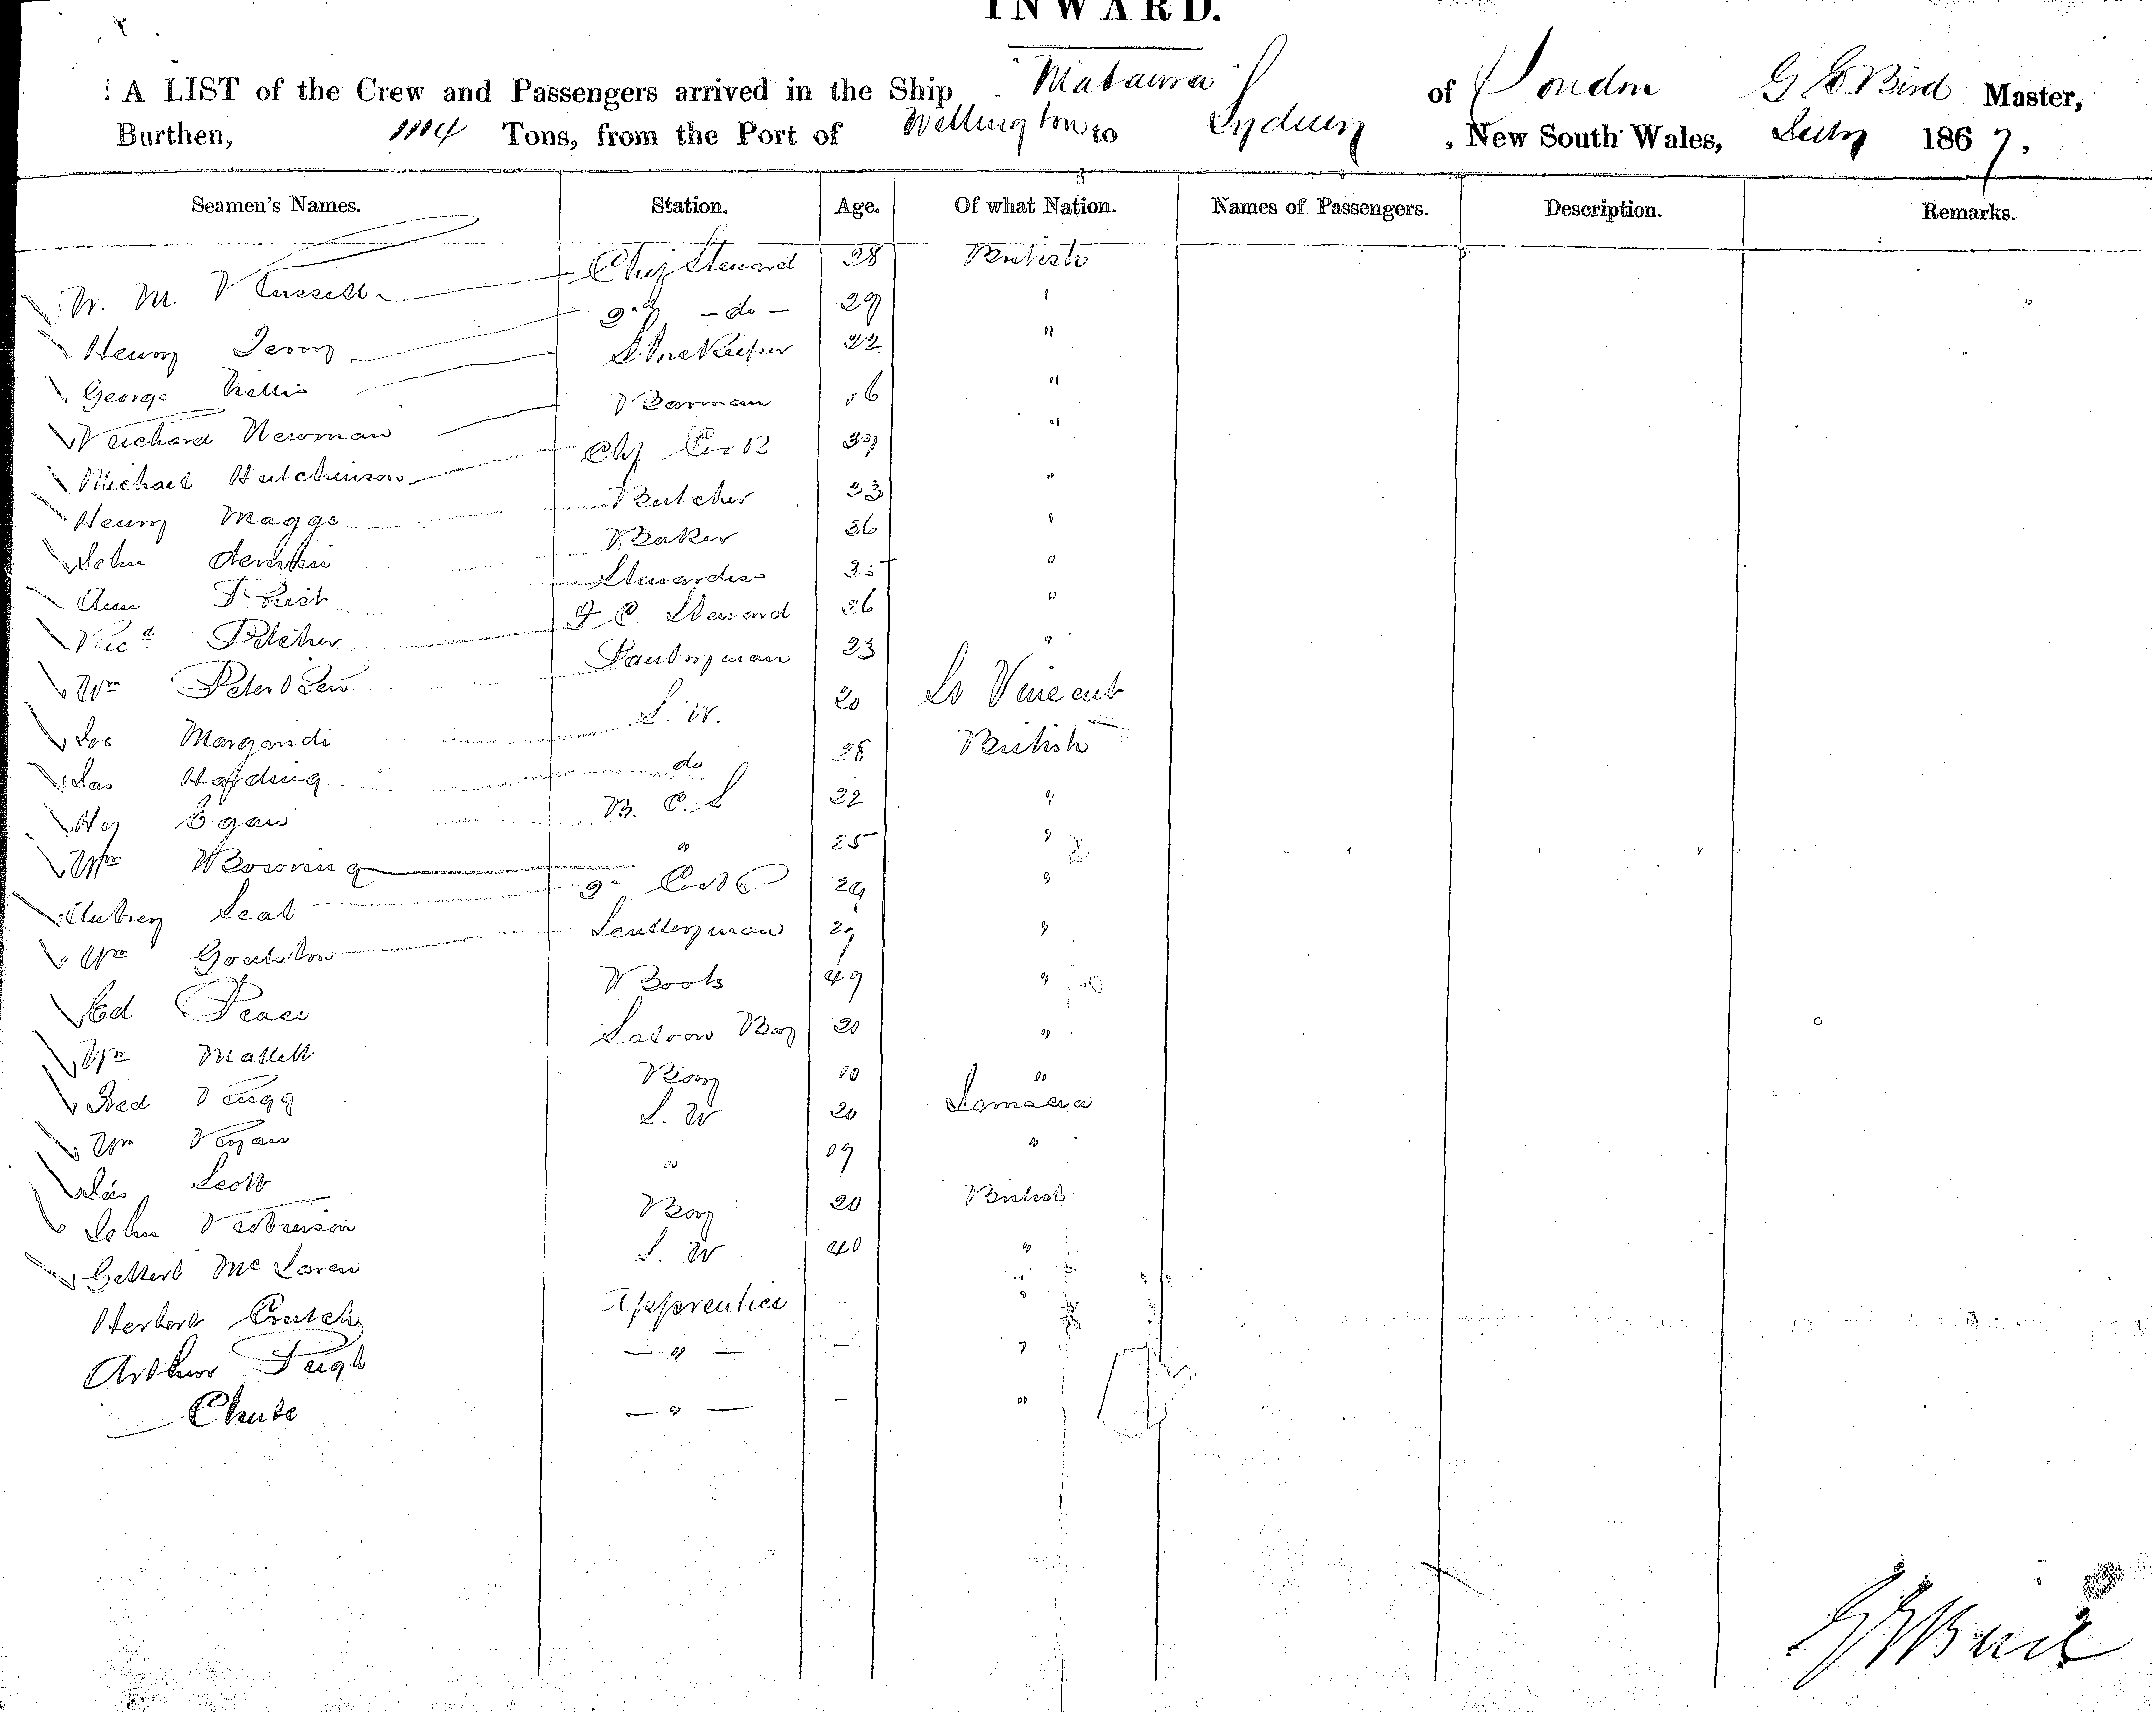 INWARD.
A LIST of the Crew and Passengers arrived in the Ship "Mataura" of London G E Bird Master,
Burthen, 1114 Tons, from the Port of Wellington to Sydney, New South Wales, July 1867.
Seamen's Names. Station. Age. Of what Nation. Names of Passengers. Description. Remarks.
W. M. Russell Chief Steward 28 British
Henry 2nd - do - 29 "
George Storekeeper 22 "
Richard Newman Barman "
Michael Hutchinson Chf Cook "
Henry Maggs Butcher 33 "
John Baker 36 "
Ann Stewardess 35 "
Ricd Pitcher F C Steward 26 "
Wm Pantryman 23 "
Jos S. W. 20 St Vincent
Jas Harding do 28 British
Hy Egan B. C. S 22 "
Wm Browning " 25 "
Aubrey Seal 2nd Cook 29 "
Wm Goulston Sculleryman "
Ed Peace Boots 49 "
Wm Mallett Saloon Boy 20 "
Fred Boy "
Wm Ryan S. W 20 Jamaica
Jas Scott " 19 "
John Robinson Boy 20 British
Gilbert McLaren S. W 40 "
Herbert Apprentice "
Arthur Pugh - " - - "
Chute - " - - "
G E Bird